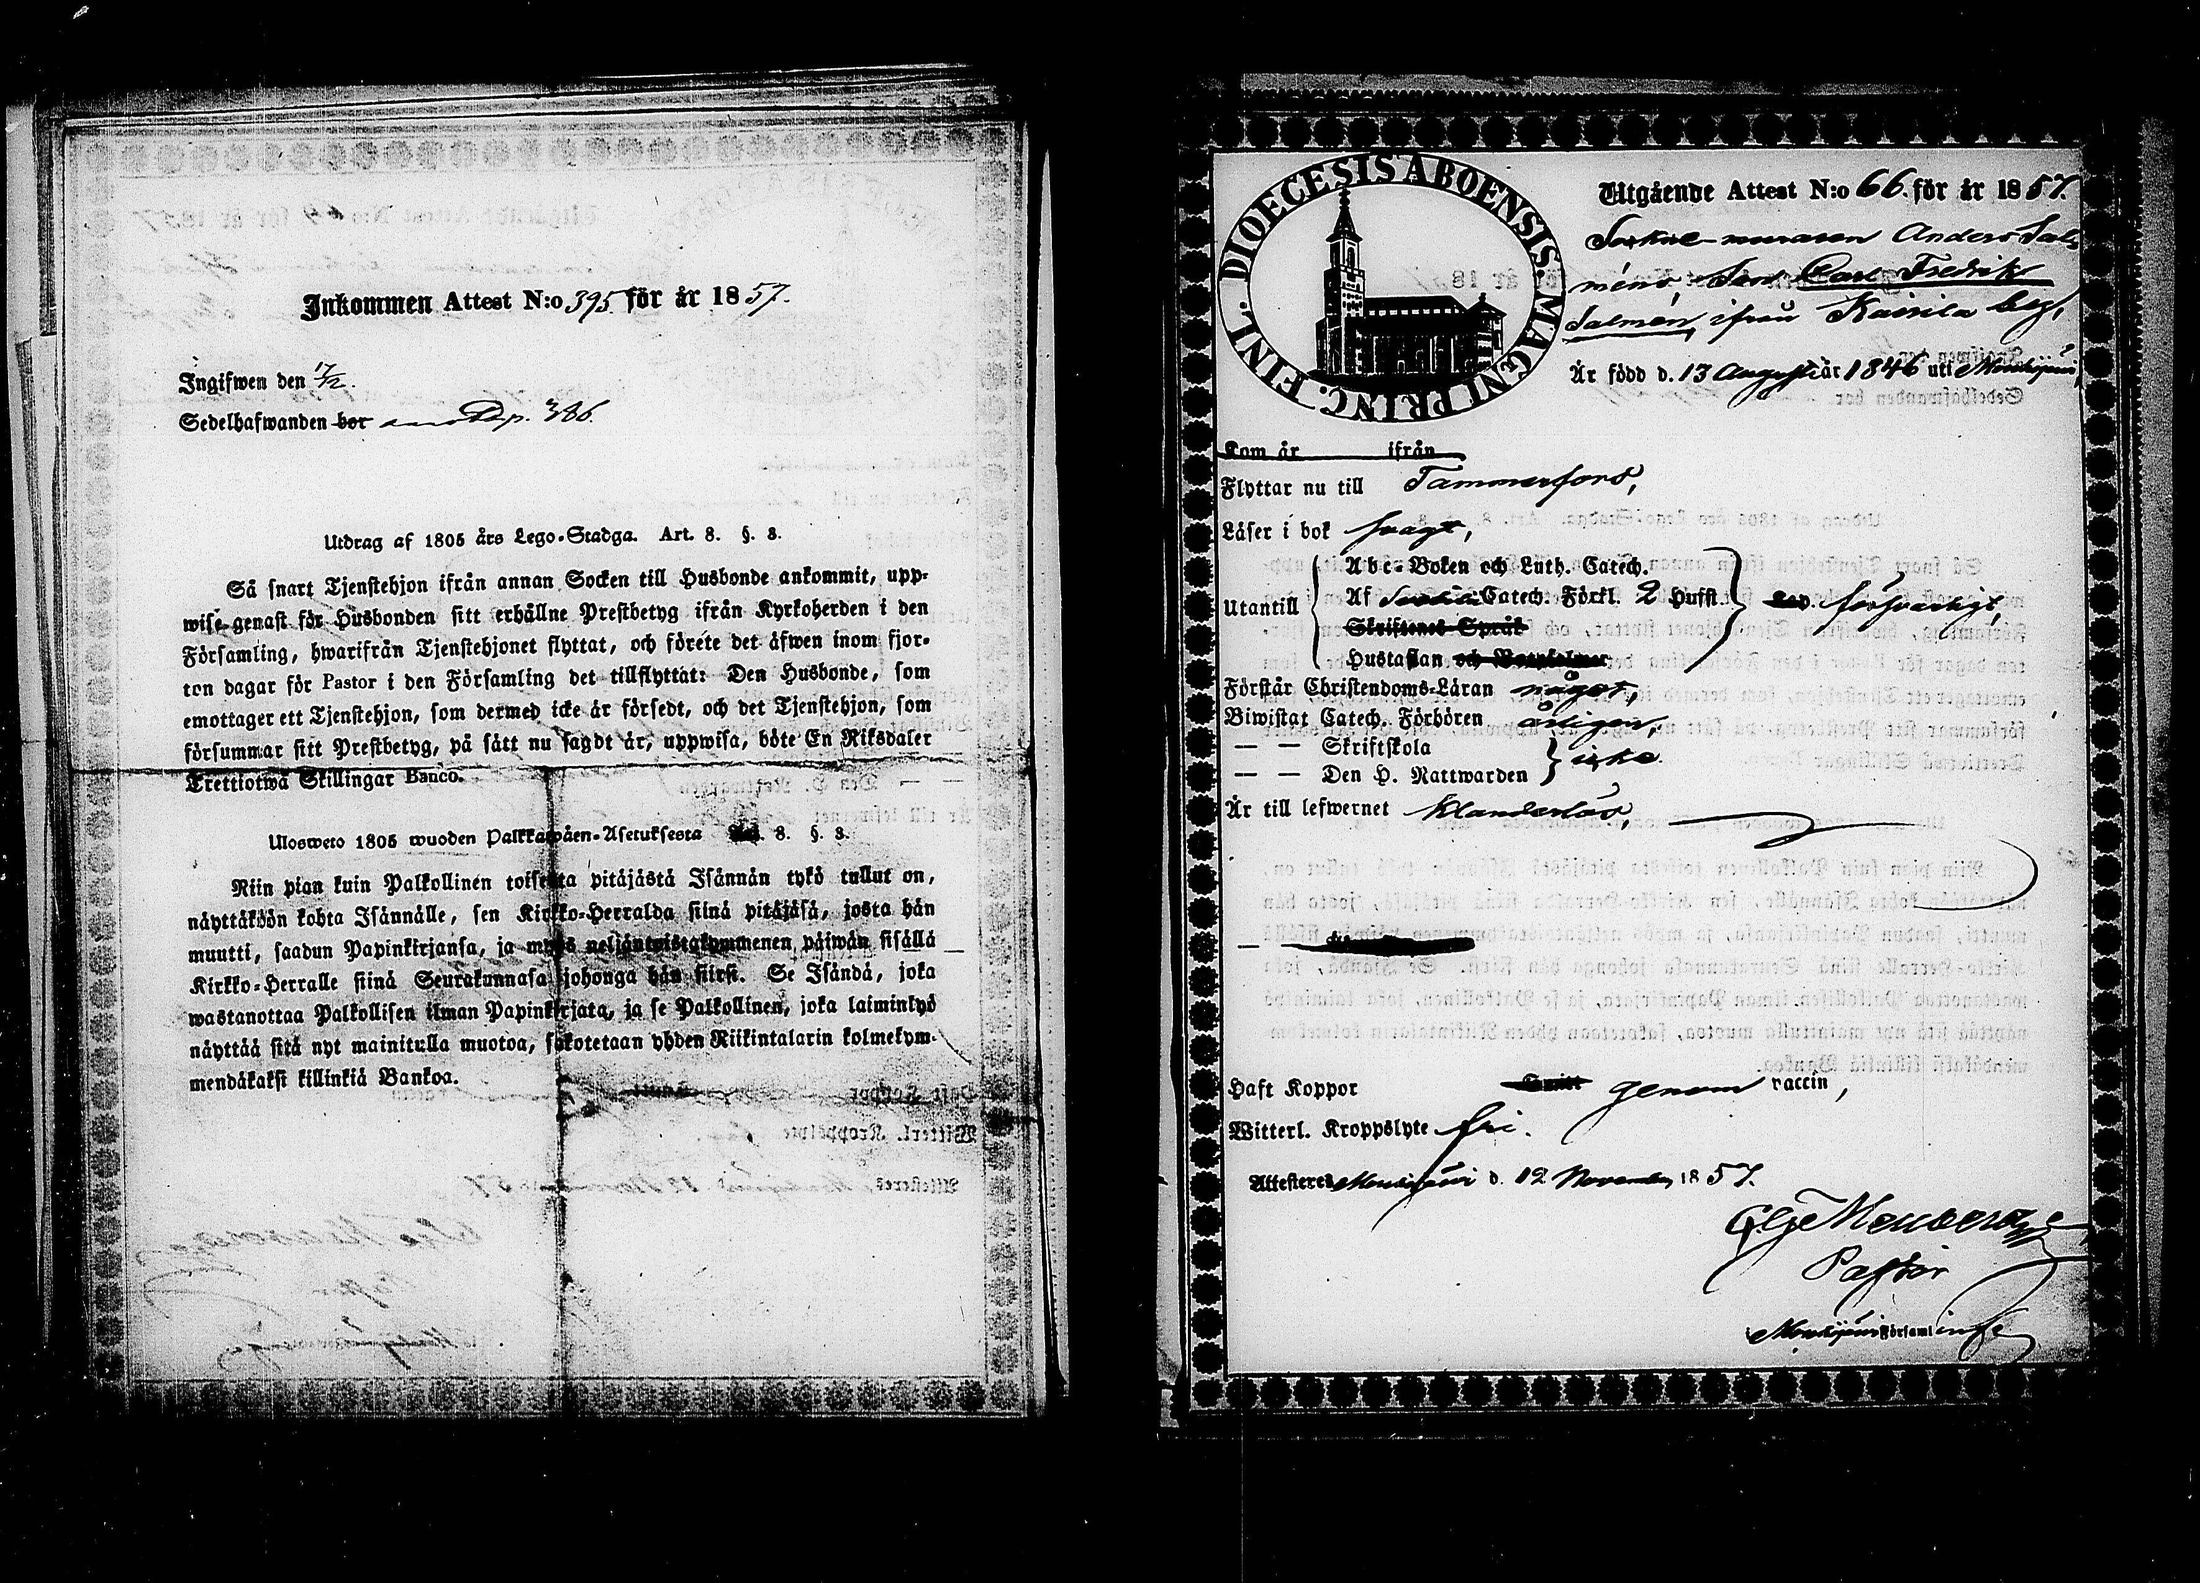 Inkommen Attest N:o 395. för år 1857.
Ingifwen den 1/12.
Sedelhafwanden bor Pag. 386.
Utdrag af 1805 års Lego-Stadga. Art. 8. §. 8.
Så snart Tjenstehjon ifrån annan Socken till Husbonde ankommit, upp-
wise genast för Husbonden sitt erhållne Prestbetyg ifrån Kyrkoherden i den
Församling, hwarifrån Tjenstehjonet flyttat, och förete det äfwen inom fjor-
ton dagar för Pastor i den Församling det tillflyttat: Den Husbonde, som
emottager ett Tjenstehjon, som dermed icke är försedt, och det Tjenstehjon, som
försummar sitt Prestbetyg, på sätt nu sagdt är, uppwisa, böte En Riksdaler
Trettiotwå Skillingar Banco.
Ulosweto 1805 wuoden Palkkawäen-Asetuksesta Art. 8. §. 8.
Niin pian kuin Palkollinen toisesta pitäjästä Isännän tykö tullut on,
näyttäköön kohta Isännälle, sen Kirkko-Herralda siinä pitäjäsä, josta hän
muutti, saadun Papinkirjansa, ja myös neljäntoistakymmenen päiwän sisällä
Kirkko-Herralle siinä Seurakunnasa johonga hän siirsi. Se Isändä, joka
wastanottaa Palkollisen ilman Papinkirjata, ja se Palkollinen, joka laiminlyö
näyttää sitä nyt mainitulla muotoa, sakotetaan yhden Riikintalarin kolmekym-
mendäkaksi killinkiä Bankoa.
DIOECESIS ABOENSIS. MAGNI PRINC. FINL.
Utgående Attest N:o 66. för år 1857.
Sockne-muraren Anders Sal-
méns, Son Carl Fredrik
Salmén, ifrån Kairila by,
Är född d. 13 Augusti år 1846 uti Mouhijärvi,
Kom år ifrån
Flyttar nu till Tammerfors,
Läser i bok svagt,
Abc-Boken och Luth. Catech.
Utantill Af Catech. Förkl. 2 Hufst. försvarligt,
Skriftenes Språk
Hustaflan och
Förstår Christendoms-Läran något,
Biwistat Catech. Förhören årligen,
— — Skriftskola
— — Den H. Nattwarden icke.
Är till lefwernet klanderlös,
Haft Koppor genom vaccin,
Witterl. Kroppslyte fri.
Attesteres Mouhijärvi d. 12 November 1857.
Pastor
Mouhijärvi Församl